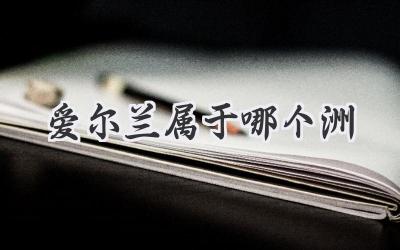 爱尔兰属于哪个洲